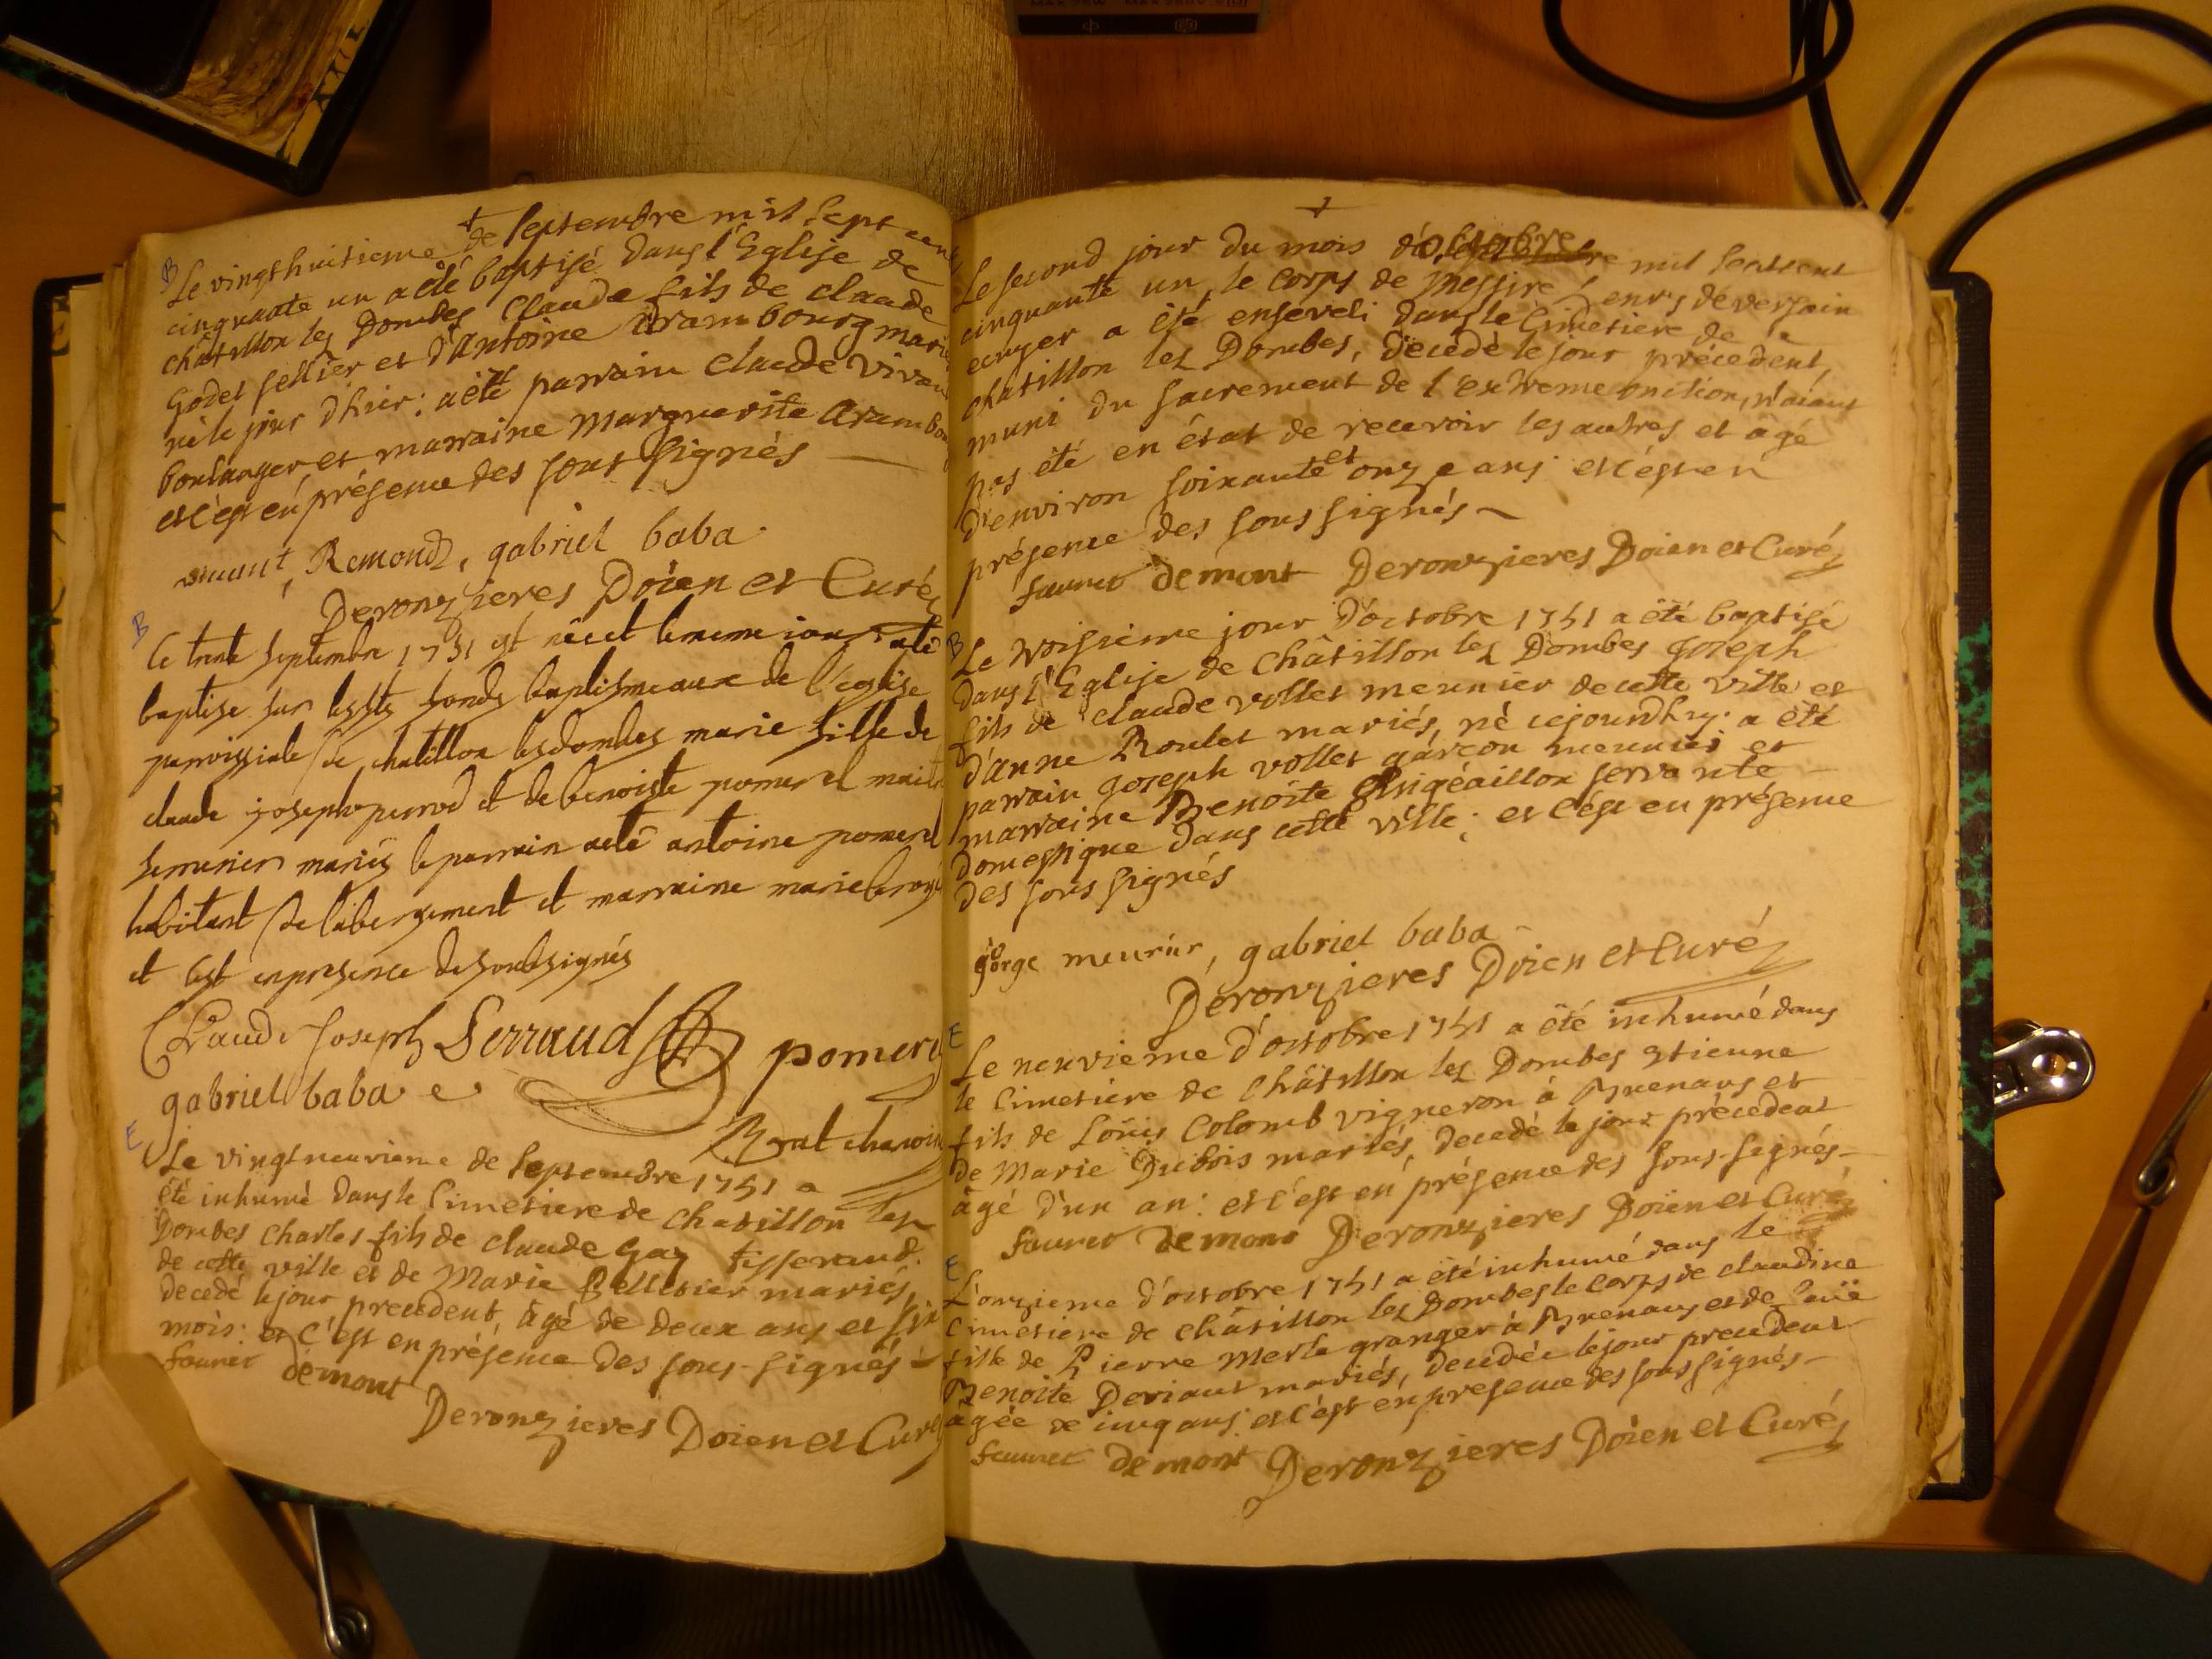 B
Le vingthuitieme de Septembre mil Sept cent
cinquante un a été baptisé dans l'Eglise de
châtillon les Dombes Claude fils de claude
Godet sellier et d'Antoine Arambourg mariés
né le jour d'hier: a été parrain claude
boulanger, et marraine Marguerite
et c'est en présence des sous signés
Remond, gabriel baba.
Deronzieres Doïen et Curé
B
Le trente septembre 1751 est née et le meme iour a eté
baptise sur les sts fonds baptismeaux de l'eglise
parroissiale de chatillon les dombes marie fille de
claude joseph perrod et de benoiste pomerel
serrurier mariés le parrain aetê antoine pomerel
habitant de labergement et marraine marie
et cest en presence des soubsignés
Claude Joseph Perraud
gabriel baba
E
Le vingtneuvieme de Septembre 1751 a
été inhumé dans le Cimetiere de chatillon les
Dombes Charles fils de claude Gay tisserand
de cette ville et de Marie Pelletier mariés,
decedé le jour precedent, âgé de deux ans et six
mois: et c'est en présence des sous-signés
fauret demont
Deronzieres Doïen et Curé
Le second jour du mois d'octobre mil Septcent
cinquante un, le corps de Messire
ecuyer a été enseveli dans le Cimetiere de
chatillon les Dombes, décédé le jour précedent,
muni du Sacrement de l'extreme onction, n'aïant
pas été en état de recevoir les autres et âgé
d'environ soixante et onze ans et c'est en
présence des sous signés
fauret demont Deronzieres Doïen et Curé
B
Le troisieme jour d'octobre 1751 a été baptisé
dans l'Eglise de Châtillon les Dombes Joseph
fils de claude vollet meunier de cette ville et
d'anne Roulet mariés, né cejourdhuy: a été
parrain Joseph vollet garçon meunier et
marraine Benoite servante
domestique dans cette ville; et c'est en présence
des sous signés
gorge meurier, gabriel baba
Deronzieres Doïen et Curé
E
Le neuvieme d'octobre 1751 a été inhumé dans
le Cimetiere de Châtillon les Dombes Etienne
fils de Loüis Colomb vigneron à Brenans et
de Marie Dubois mariés, decedé le jour précedent
âgé d'un an: et c'est en présence des sous-signés
fauret demont Deronzieres Doïen et Curé
E
L'onzieme d'octobre 1751 a été inhumé dans le
Cimetiere de Châtillon les Dombes le corps de claudine
fille de Pierre Merle granger à Brenans et de
Benoite mariés, decedée le jour precedent
âgée de cinq ans et c'est en presence des sous signés
fauret demont Deronzieres Doïen et Curé